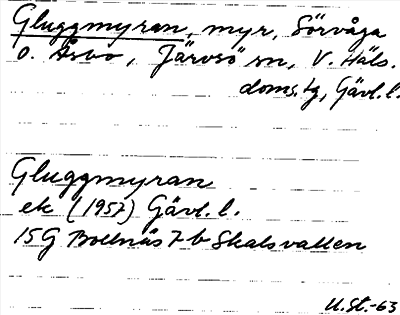 Gluggmyran, myr, Sörvåga
o. Åsbo, Järvsö sn, V. Häls.
doms.tg, Gävl.l.
Gluggmyran
ek (1957) Gävl.l.
15G Bollnäs 7b Skalsvallen
U.St.-63